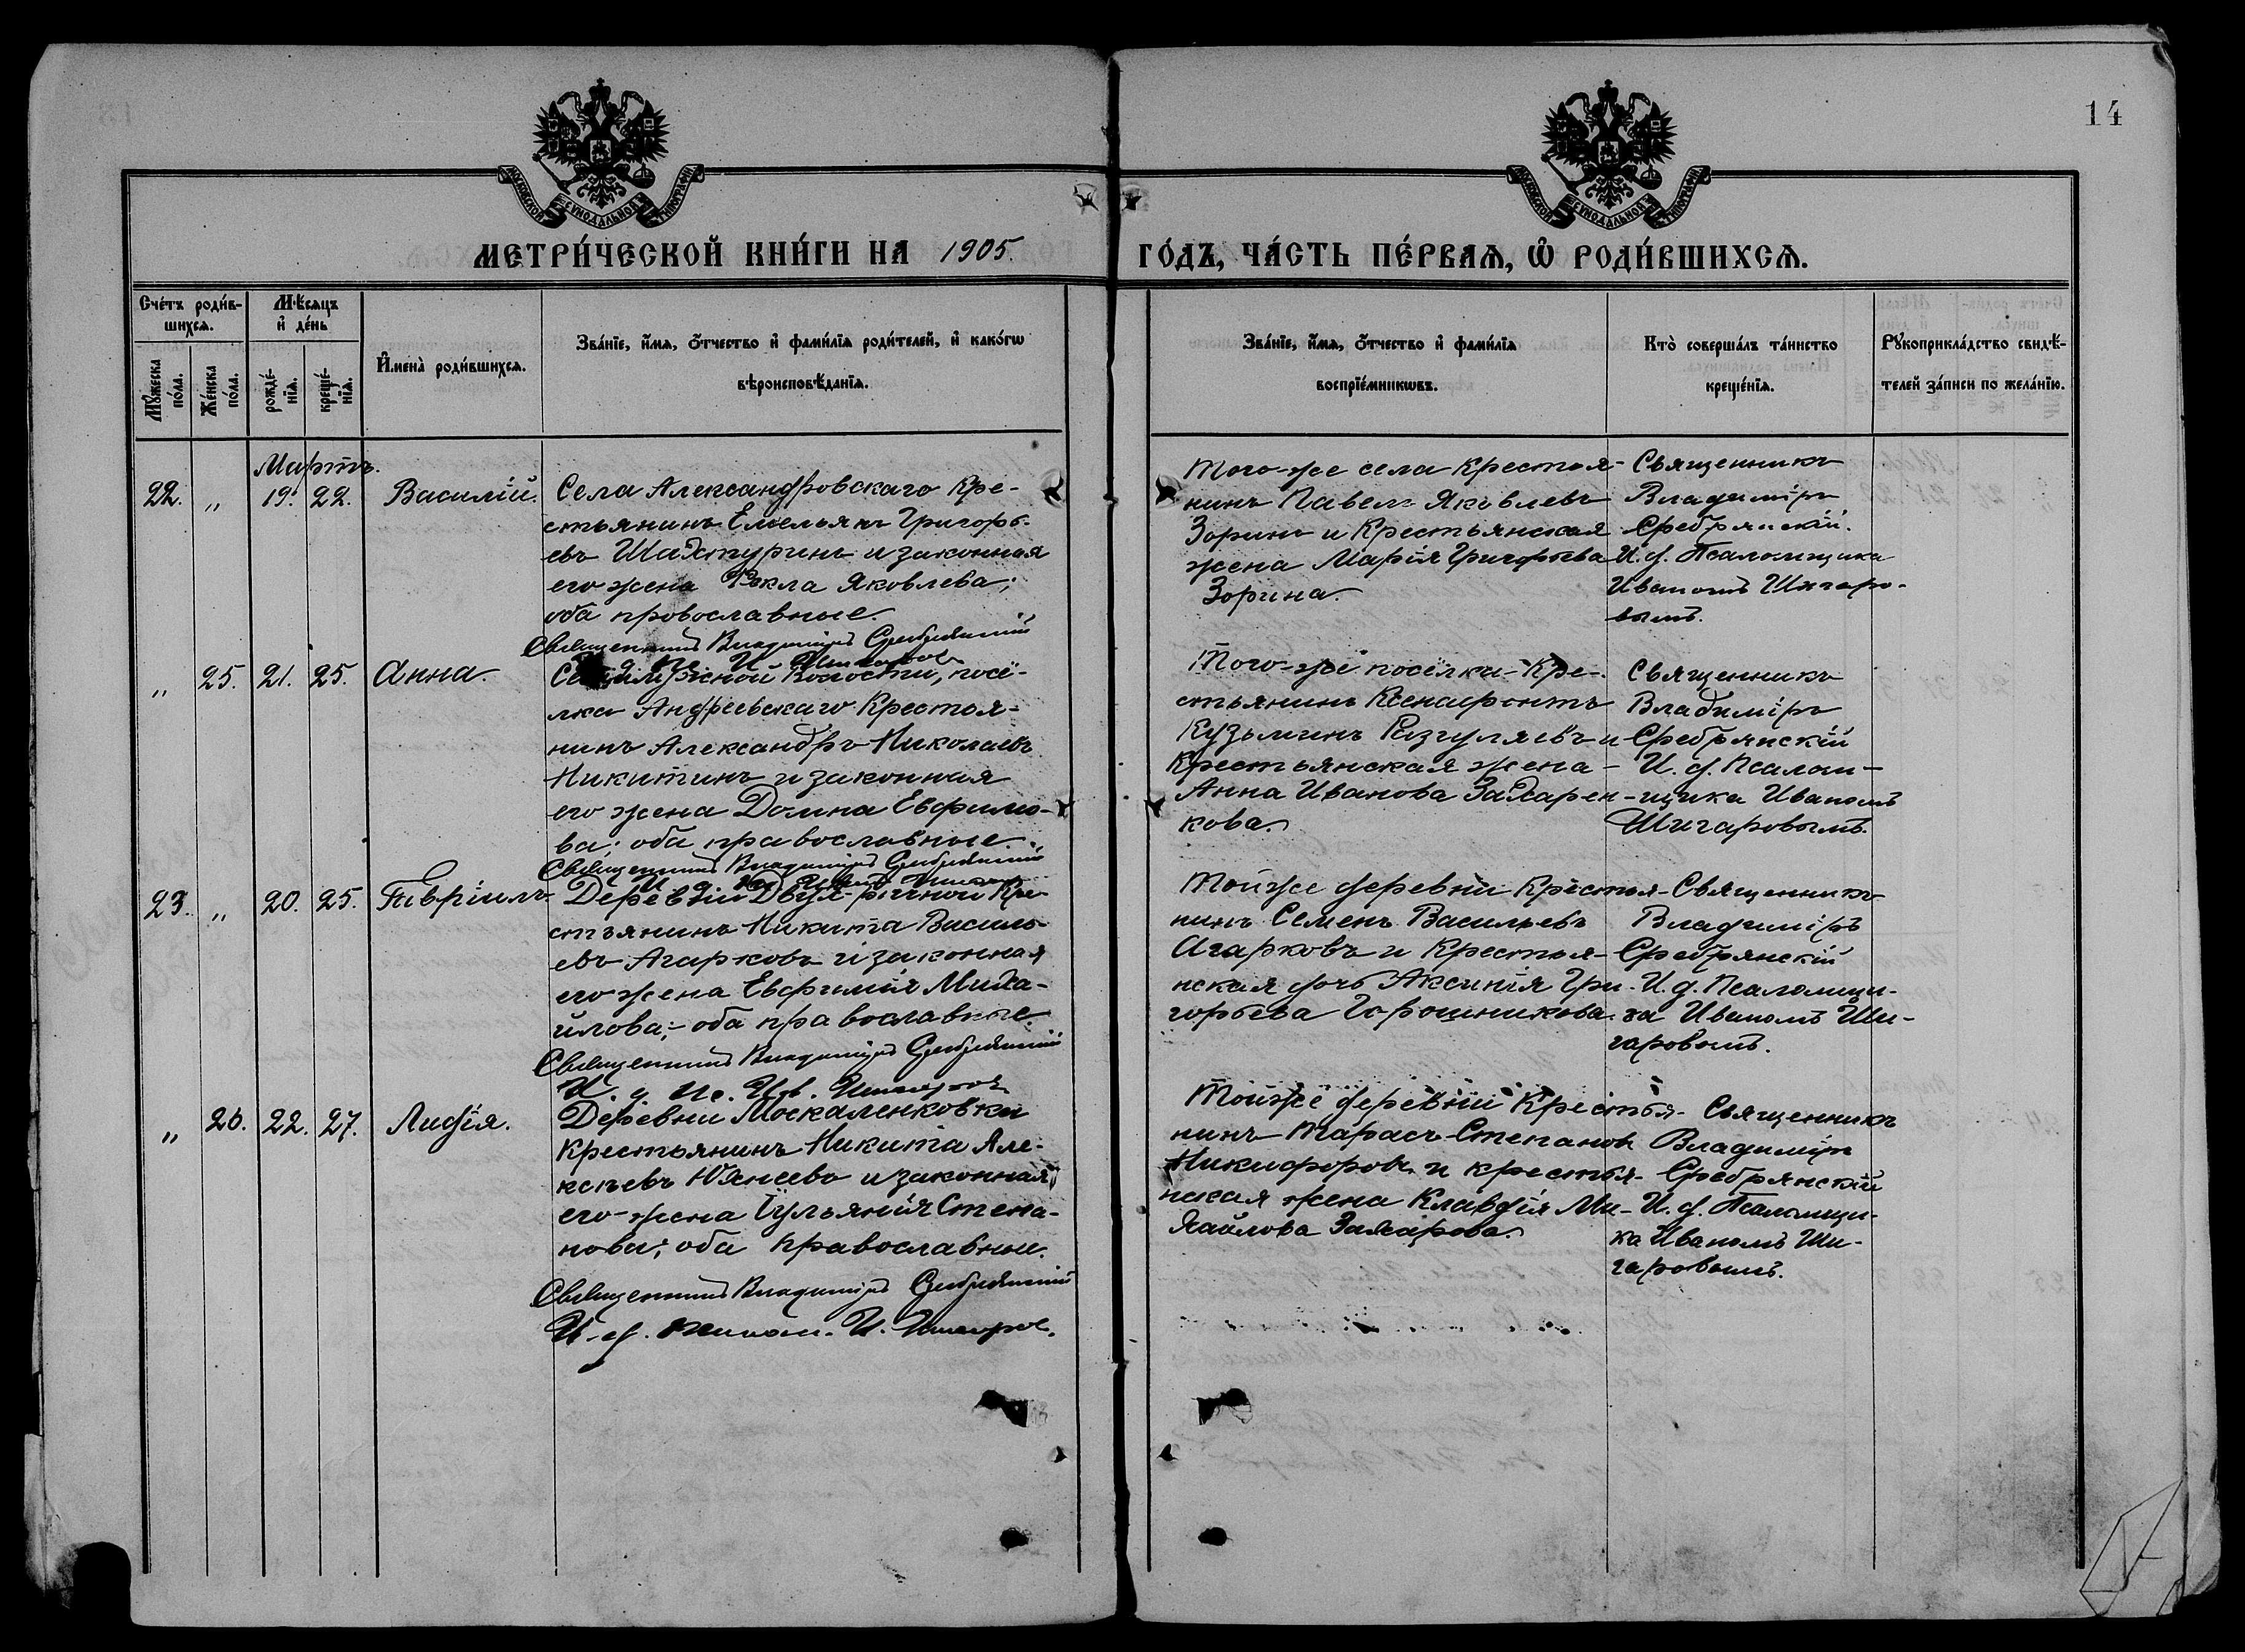 14
МОСКОВСКОЙ СУНОДАЛЬНОЙ ТИПОГРАФІИ
МОСКОВСКОЙ СУНОДАЛЬНОЙ ТИПОГРАФІИ
МЕТРИ́ЧЕСКОЙ КНИ́ГИ НА 1905.
ГО́ДЪ, ЧА́СТЬ ПЕ́РВАѦ, Ѡ҆ РОДИ́ВШИХСѦ.
Сче́тъ роди́в-
шихсѧ.
Мꙋ́жеска
по́ла.
Же́нска
по́ла.
Мѣ́сѧцъ
и҆ де́нь
рожде́-
нїѧ.
креще́-
нїѧ.
И҆мена̀ роди́вшихсѧ.
Зва́нїе, и҆́мѧ, ѻ҆́тчество и҆ фами́лїѧ роди́телей, и҆ како́гѡ
вѣроисповѣ́данїѧ.
Зва́нїе, и҆́мѧ, ѻ҆́тчество и҆ фами́лїѧ
воспрїе́мникѡвъ.
Кто̀ соверша́лъ та́инство
креще́нїѧ.
Рꙋкоприкла́дство свидѣ́-
телей за́писи по жела́нїю.
Мартъ.
22. „ 19. 22. Василій.
Села Александровскаго Кре-
стьянинъ Емельянъ Григорь-
евъ Шахтуринъ и законная
его жена Фекла Яковлева;
оба провославные.
Священникъ Владиміръ Сребрянскій
Того-же села Крестья-
нинъ Павелъ Яковлевъ
Зоринъ и Крестьянская
жена Марія Григорьева
Зорина.
Священникъ
Владиміръ
Сребрянскій.
И. д. Псаломщика
Иваномъ Шигаро-
вымъ.
„ 25. 21. 25. Анна.
волости, посё-
лка Андреевскаго Крестья-
нинъ Александръ Николаевъ
Никитинъ и законная
его жена Домна Евфимо-
ва; оба православные.
Священникъ Владиміръ Сребрянскій
Того-же посёлка Кре-
стьянинъ Ксенофонтъ
Кузьминъ Разгуляевъ и
Крестьянская жена
Анна Иванова Захарен-
кова.
Священникъ
Владиміръ
Сребрянскій
И. д. Псалом-
щика Иваномъ
Шигаровымъ.
23. „ 20. 25. Гавріилъ
Деревни Двух-рѣчной Кре-
стьянинъ Никита Василь-
евъ Агарковъ и законная
его жена Евфимія Миха-
йлова; оба православные.
Священникъ Владиміръ Сребрянскій
И. д. Пс. Ив. Шигаров
Тойже деревни Крестья-
нинъ Семенъ Васильевъ
Агарковъ и Крестья-
нская дочь Аксинія Гри-
горьева Горошникова.
Священникъ
Владиміръ
Сребрянскій
И. д. Псаломщи-
ка Иваномъ Ши-
гаровымъ.
„ 26. 22. 27. Лидія.
Деревни Москаленковки
Крестьянинъ Никита Але-
ксѣевъ и законная
его жена Іульянія Степа-
нова; оба православные.
Священникъ Владиміръ Сребрянскій
И. д. Псалом. И. Шигаров.
Тойже деревни Крестья-
нинъ Тарасъ Степановъ
Никифоровъ и крестья-
нская жена Клавдія Ми-
хайлова Захарова.
Священникъ
Владиміръ
Сребрянскій
И. д. Псаломщи-
ка Иваномъ Ши-
гаровымъ.